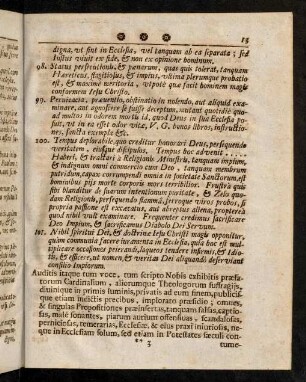 13
digna, ut sint in Ecclesia, vel tanquam ab ea separata; sed
Justus vivit ex fide, & non ex opinione hominum.
98. Status persecutionis, & pœnarum, quas quis tolerat, tanquam
Hæreticus, flagitiosus, & impius, ultima plerumque probatio
est, & maxime meritoria, utpote quæ facit hominem magis
conformem Jesu Christo.
99. Pervicacia, præventio, obstinatio in nolendo, aut aliquid exa-
minare, aut agnoscere se fuisse deceptum, mutant quotidie quoad
multos in odorem mortis id, quod Deus in sua Ecclesia po-
suit, ut in ea esset odor vitæ, V. G. bonos libros, instructio-
nes, sancta exempla &c.
100. Tempus deplorabile, quo creditur honorari Deus, persequendo
veritatem, ejusque discipulos. Tempus hoc advenit . . . .
Haberi, & tractari à Religionis Ministris, tanquam impium,
& indignum omni commercio cum Deo, tanquam membrum
putridum, capax corrumpendi omnia in societate Sanctorum, est
hominibus piis morte corporis mors terribilior. Frustra quis
sibi blanditur de suarum intentionum puritate, & Zelo quo-
dam Religionis, persequendo flamma, ferroque viros probos, si
propria passione est excæcatus, aut abreptus aliena, propterea
quod nihil vult examinare. Frequenter credimus sacrificare
Deo Impium, & sacrificamus Diabolo Dei Servum.
101. Nihil spiritui Dei, & doctrinæ Jesu Christi magis opponitur,
quàm communia facere juramenta in Ecclesia, quia hoc est mul-
tiplicare occasiones pejerandi, laqueos tendere infirmis, & Idio-
tis, & efficere, ut nomen, & veritas Dei aliquandò deserviant
consilio Impiorum.
Auditis itaque tum voce, tum scripto Nobis exhibitis præfa-
torum Cardinalium, aliorumque Theologorum suffragijs,
divinique in primis luminis, privatis ad eum finem, publicis-
que etiam indictis precibus, implorato præsidio; omnes,
& singulas Propositiones præinsertas, tanquam falsas, captio-
sas, malè sonantes, piarum aurium offensivas, scandalosas,
perniciosas, temerarias, Ecclesiæ, & ejus praxi injuriosas, ne-
que in Ecclesiam solùm, sed etiam in Potestates sæculi con-
** 3
tume-